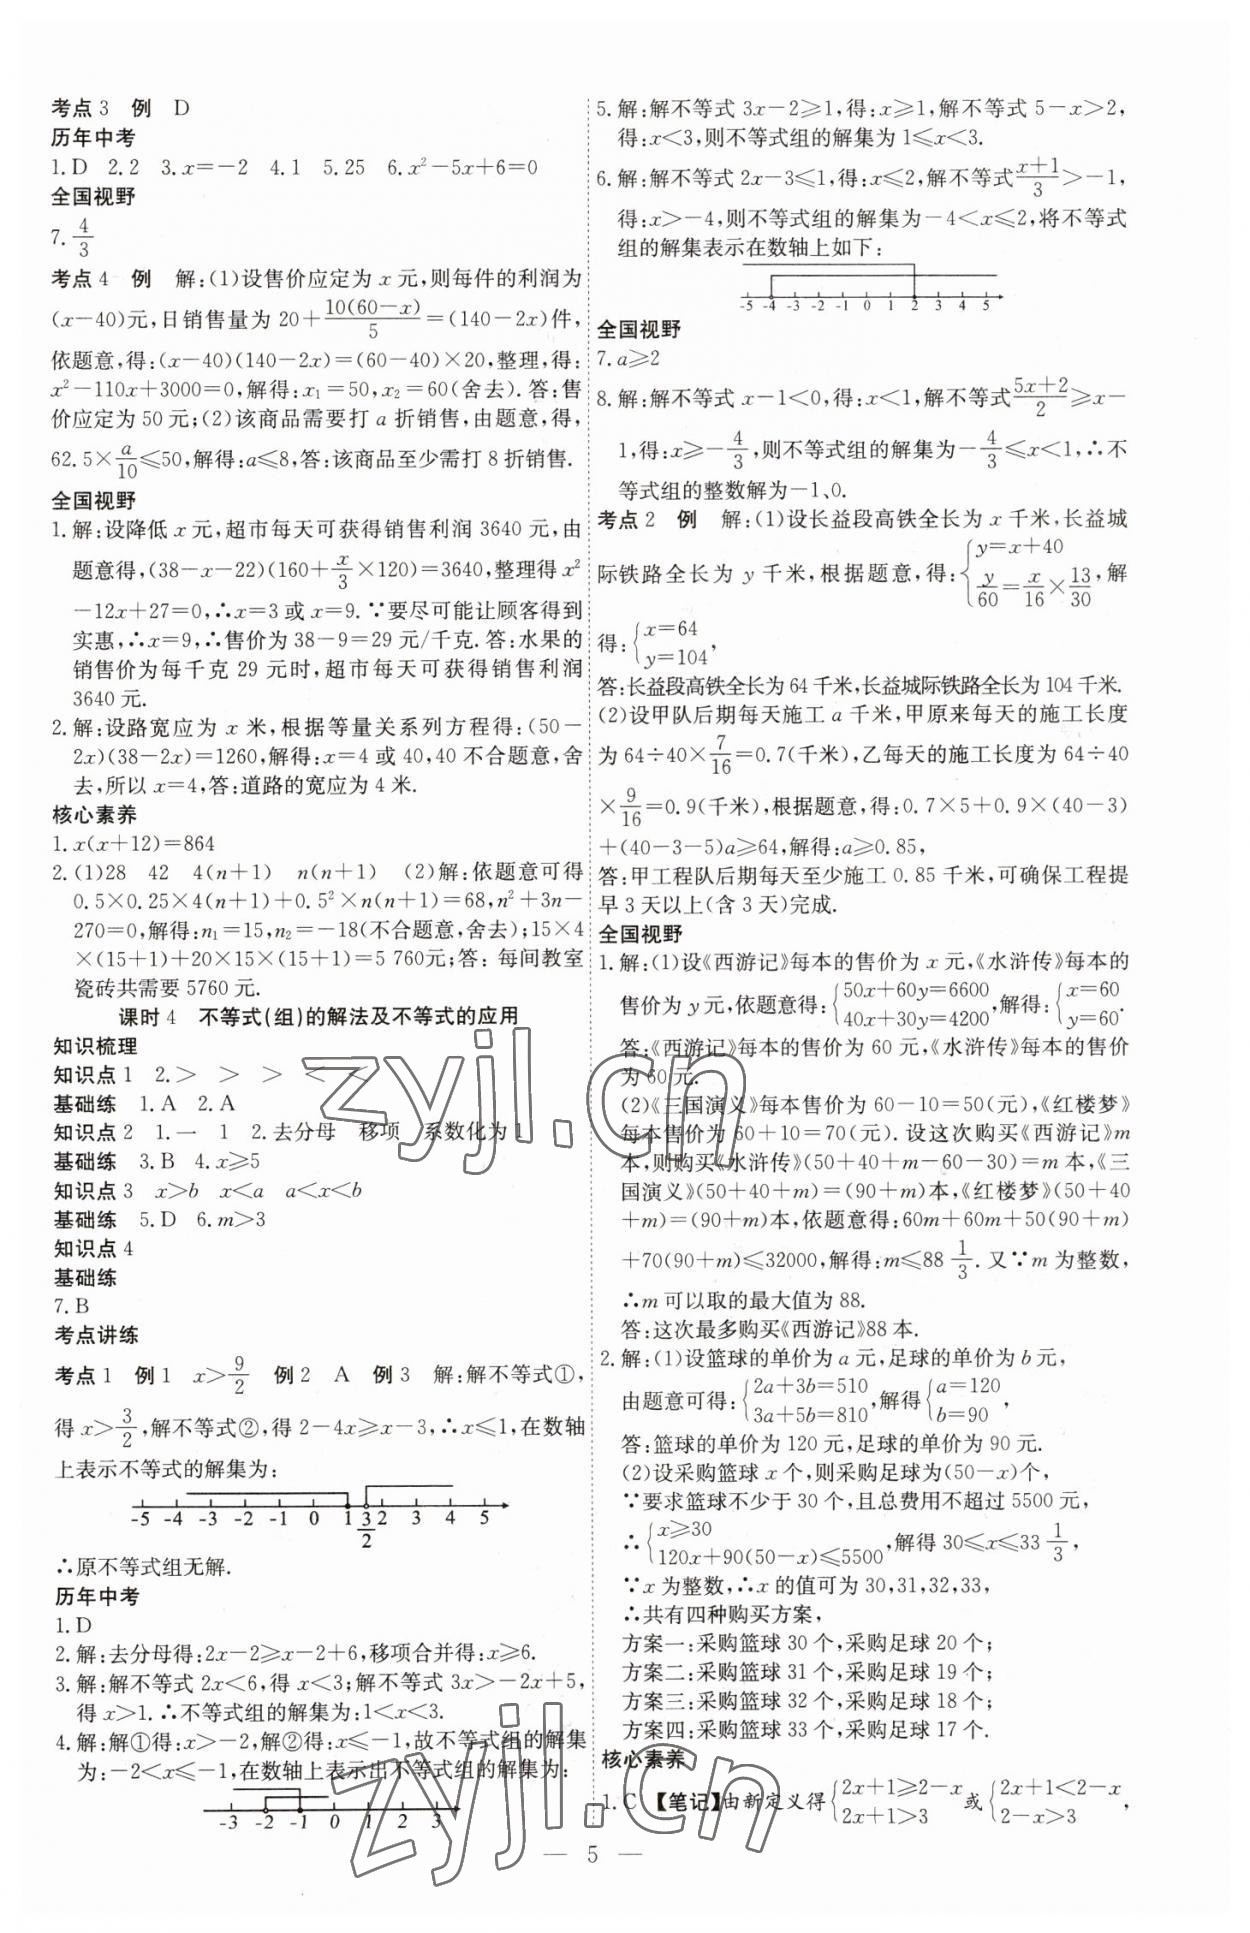 考点3　例　D
历年中考
1.D　2.2　3.x=-2　4.1　5.25　6.x²-5x+6=0
全国视野
7.4/3
考点4　例　解:(1)设售价应定为 x 元,则每件的利润为
(x-40)元,日销售量为 20+10(60-x)/5=(140-2x)件,
依题意,得:(x-40)(140-2x)=(60-40)×20,整理,得:
x²-110x+3000=0,解得:x₁=50,x₂=60(舍去).答:售
价应定为 50 元;(2)该商品需要打 a 折销售,由题意,得,
62.5×a/10≤50,解得:a≤8,答:该商品至少需打 8 折销售.
全国视野
1.解:设降低 x 元,超市每天可获得销售利润 3640 元,由
题意得,(38-x-22)(160+x/3×120)=3640,整理得 x²
-12x+27=0,∴x=3 或 x=9.∵要尽可能让顾客得到
实惠,∴x=9,∴售价为 38-9=29 元/千克.答:水果的
销售价为每千克 29 元时,超市每天可获得销售利润
3640 元.
2.解:设路宽应为 x 米,根据等量关系列方程得:(50-
2x)(38-2x)=1260,解得:x=4 或 40,40 不合题意,舍
去,所以 x=4,答:道路的宽应为 4 米.
核心素养
1.x(x+12)=864
2.(1)28　42　4(n+1)　n(n+1)　(2)解:依题意可得
0.5×0.25×4(n+1)+0.5²×n(n+1)=68,n²+3n-
270=0,解得:n₁=15,n₂=-18(不合题意,舍去);15×4
×(15+1)+20×15×(15+1)=5 760元;答: 每间教室
瓷砖共需要 5760 元.
课时4　不等式(组)的解法及不等式的应用
知识梳理
知识点1　2.>　>　>　<　<
基础练　1.A　2.A
知识点2　1.一　1　2.去分母　移项　系数化为1
基础练　3.B　4.x≥5
知识点3　x>b　x<a　a<x<b
基础练　5.D　6.m>3
知识点4
基础练
7.B
考点讲练
考点1　例1　x>9/2　例2　A　例3　解:解不等式①,
得 x>3/2,解不等式②,得 2-4x≥x-3,∴x≤1,在数轴
上表示不等式的解集为:
-5 -4 -3 -2 -1 0 1 3/2 2 3 4 5
∴原不等式组无解.
历年中考
1.D
2.解:去分母得:2x-2≥x-2+6,移项合并得:x≥6.
3.解:解不等式 2x<6,得 x<3;解不等式 3x>-2x+5,
得 x>1.∴不等式组的解集为:1<x<3.
4.解:解①得:x>-2,解②得:x≤-1,故不等式组的解集
为:-2<x≤-1,在数轴上表示出不等式组的解集为:
-3 -2 -1 0 1 2 3
5.解:解不等式 3x-2≥1,得:x≥1,解不等式 5-x>2,
得:x<3,则不等式组的解集为 1≤x<3.
6.解:解不等式 2x-3≤1,得:x≤2,解不等式(x+1)/3>-1,
得:x>-4,则不等式组的解集为-4<x≤2,将不等式
组的解集表示在数轴上如下:
-5 -4 -3 -2 -1 0 1 2 3 4 5
全国视野
7.a≥2
8.解:解不等式 x-1<0,得:x<1,解不等式(5x+2)/2≥x-
1,得:x≥-4/3,则不等式组的解集为-4/3≤x<1,∴不
等式组的整数解为-1、0.
考点2　例　解:(1)设长益段高铁全长为 x 千米,长益城
际铁路全长为 y 千米,根据题意,得:{y=x+40 y/60=x/16×13/30,解
得:{x=64 y=104,
答:长益段高铁全长为 64 千米,长益城际铁路全长为 104 千米.
(2)设甲队后期每天施工 a 千米,甲原来每天的施工长度
为 64÷40×7/16=0.7(千米),乙每天的施工长度为 64÷40
×9/16=0.9(千米),根据题意,得:0.7×5+0.9×(40-3)
+(40-3-5)a≥64,解得:a≥0.85,
答:甲工程队后期每天至少施工 0.85 千米,可确保工程提
早 3 天以上(含 3 天)完成.
全国视野
1.解:(1)设《西游记》每本的售价为 x 元,《水浒传》每本的
售价为 y 元,依题意得:{50x+60y=6600 40x+30y=4200,解得:{x=60 y=60.
答:《西游记》每本的售价为 60 元,《水浒传》每本的售价
为 60 元.
(2)《三国演义》每本售价为 60-10=50(元),《红楼梦》
每本售价为 60+10=70(元).设这次购买《西游记》m
本,则购买《水浒传》(50+40+m-60-30)=m 本,《三
国演义》(50+40+m)=(90+m)本,《红楼梦》(50+40
+m)=(90+m)本,依题意得:60m+60m+50(90+m)
+70(90+m)≤32000,解得:m≤88 1/3.又∵m 为整数,
∴m 可以取的最大值为 88.
答:这次最多购买《西游记》88 本.
2.解:(1)设篮球的单价为 a 元,足球的单价为 b 元,
由题意可得:{2a+3b=510 3a+5b=810,解得{a=120 b=90,
答:篮球的单价为 120 元,足球的单价为 90 元.
(2)设采购篮球 x 个,则采购足球为(50-x)个,
∵要求篮球不少于 30 个,且总费用不超过 5500 元,
∴{x≥30 120x+90(50-x)≤5500,解得 30≤x≤33 1/3,
∵x 为整数,∴x 的值可为 30,31,32,33,
∴共有四种购买方案,
方案一:采购篮球 30 个,采购足球 20 个;
方案二:采购篮球 31 个,采购足球 19 个;
方案三:采购篮球 32 个,采购足球 18 个;
方案四:采购篮球 33 个,采购足球 17 个.
核心素养
1.C　【笔记】由新定义得{2x+1≥2-x 2x+1>3 或{2x+1<2-x 2-x>3,
— 5 —
zyjl.cn
zyjl.cn